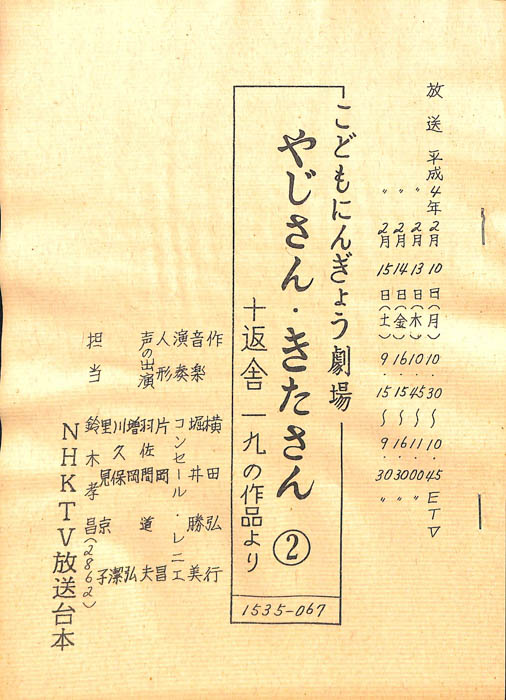 放送 平成4年2月10日(月) 10.30〜10.45 ETV
〃 2月13日(木) 10.45〜11.00 〃
〃 2月14日(金) 16.15〜16.30 〃
〃 2月15日(土) 9.15〜9.30 〃
こどもにんぎょう劇場
やじさん・きたさん ②
十返舎一九の作品より
1535-067
作 横田弘行
音楽 堀井勝美
演奏 コンセール・レニエ
人形 片岡昌
声の出演 羽佐間道夫
増岡弘
川久保潔
里見京子
担当 鈴木孝昌(2862)
NHKTV放送台本